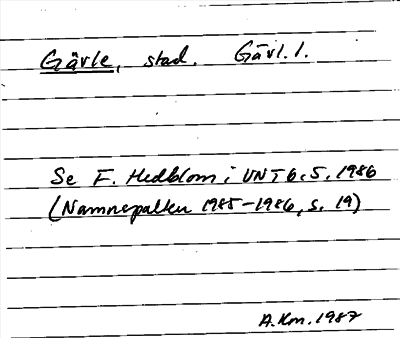 Gävle, stad. Gävl. l.
Se F. Hedblom i UNT 6.5.1986
(Namnspalten 1985-1986, s. 19)
A.Km. 1987